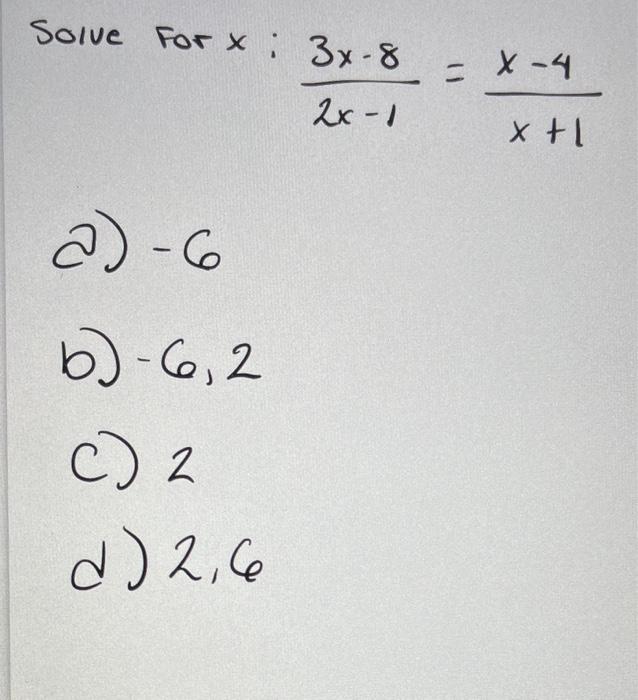 Solve For x ; 3x-8 / 2x-1 = x-4 / x+1
a) -6
b) -6, 2
c) 2
d) 2, 6